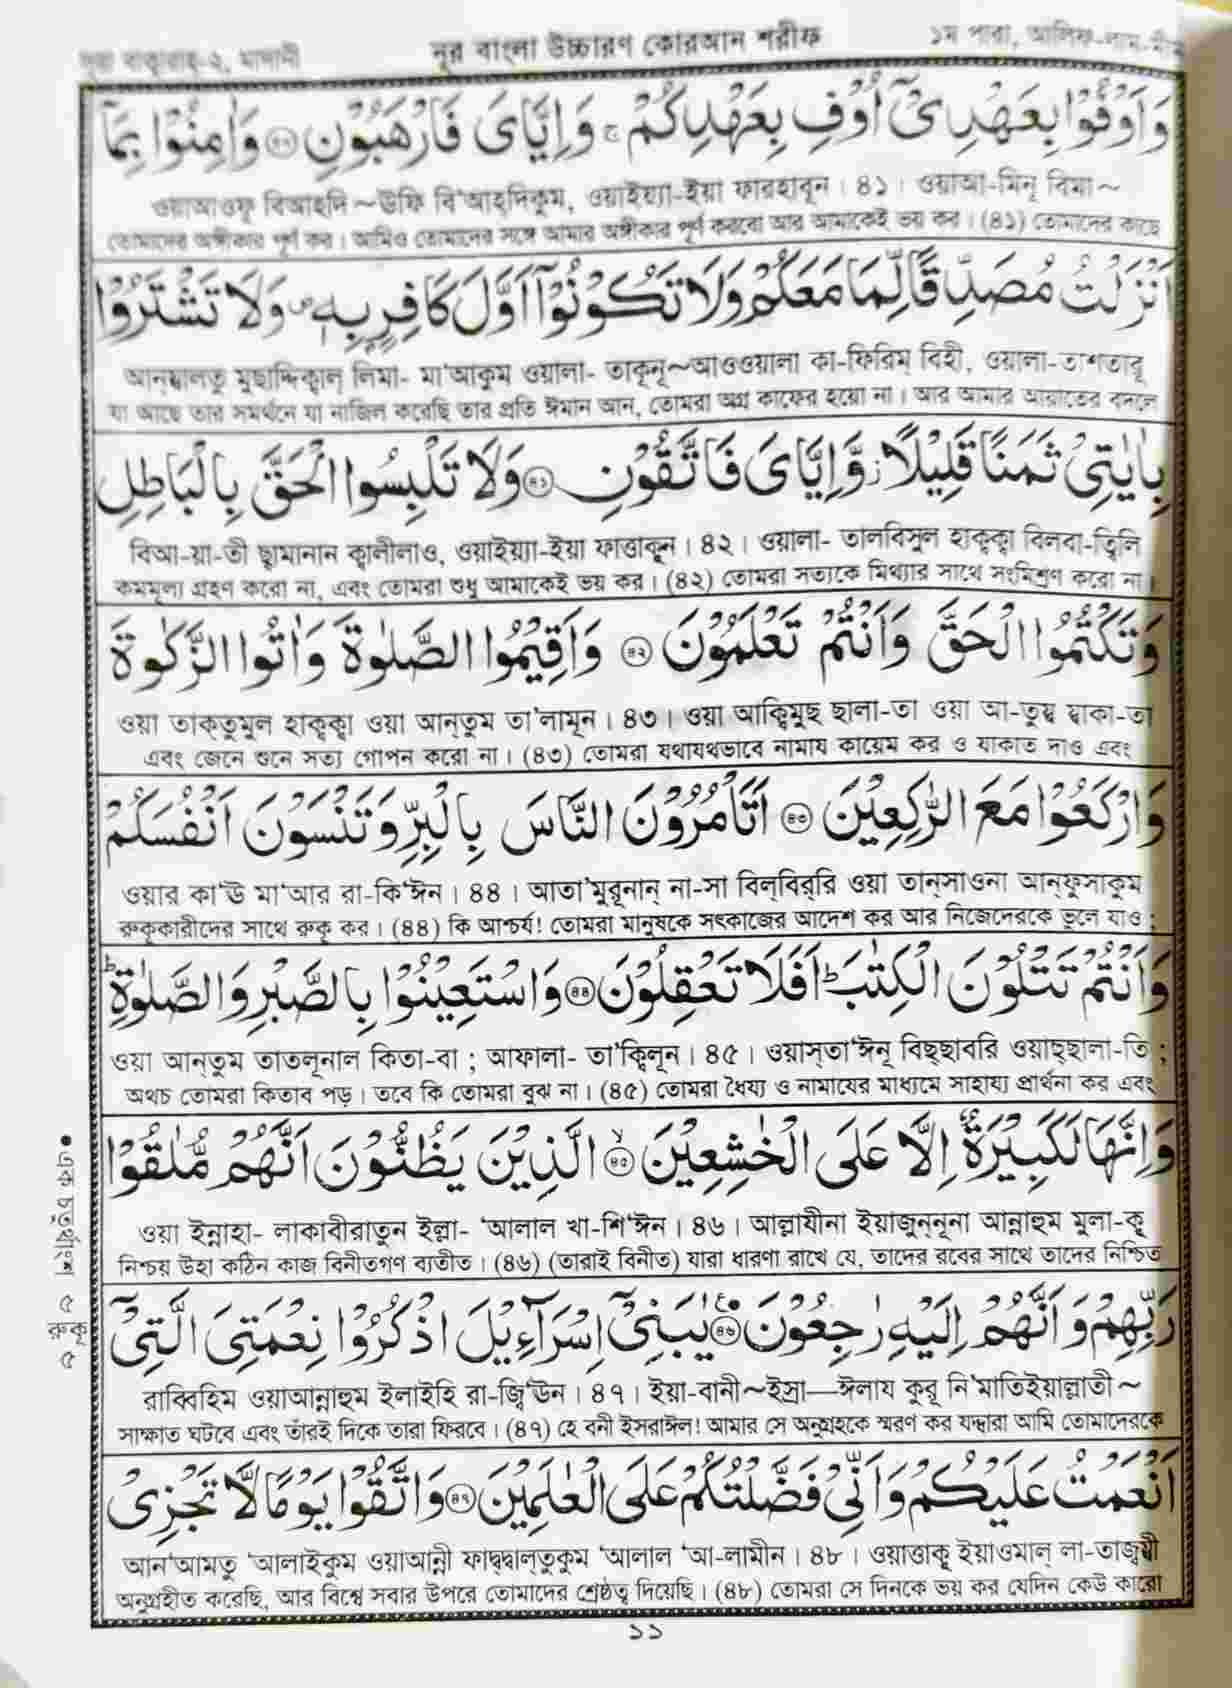 সূরা বাক্বারাহ-২, মাদানী
নূর বাংলা উচ্চারণ কোরআন শরীফ
১ম পারা, আলিফ-লাম-মীম
وَاَوْفُوْا بِعَهْدِىْٓ اُوْفِ بِعَهْدِكُمْ ۚ وَاِيَّاىَ فَارْهَبُوْنِ ﴿٤٠﴾ وَاٰمِنُوْا بِمَآ
ওয়াআওফূ বিআহদি ~ উফি বি'আহ্দিকুম, ওয়াইয়্যা-ইয়া ফারহাবূন। ৪১। ওয়াআ-মিনূ বিমা ~
তোমাদের অঙ্গীকার পূর্ণ কর। আমিও তোমাদের সঙ্গে আমার অঙ্গীকার পূর্ণ করবো আর আমাকেই ভয় কর। (৪১) তোমাদের কাছে
اَنْزَلْتُ مُصَدِّقًا لِّمَا مَعَكُمْ وَلَا تَكُوْنُوْٓا اَوَّلَ كَافِرٍۭ بِهٖ ۪ وَلَا تَشْتَرُوْا
আন্‌যালতু মুছাদ্দিক্বাল্ লিমা- মা'আকুম ওয়ালা- তাকূনূ~আওওয়ালা কা-ফিরিম্ বিহী, ওয়ালা-তাশতারূ
যা আছে তার সমর্থনে যা নাজিল করেছি তার প্রতি ঈমান আন, তোমরা অগ্র কাফের হয়ো না। আর আমার আয়াতের বদলে
بِاٰيٰتِىْ ثَمَنًا قَلِيْلًا ؗ وَّاِيَّاىَ فَاتَّقُوْنِ ﴿٤١﴾ وَلَا تَلْبِسُوا الْحَقَّ بِالْبَاطِلِ
বিআ-য়া-তী ছামানান ক্বালীলাও, ওয়াইয়্যা-ইয়া ফাত্তাকূন। ৪২। ওয়ালা- তালবিসুল হাক্বক্বা বিলবা-ত্বিলি
কমমূল্য গ্রহণ করো না, এবং তোমরা শুধু আমাকেই ভয় কর। (৪২) তোমরা সত্যকে মিথ্যার সাথে সংমিশ্রণ করো না।
وَتَكْتُمُوا الْحَقَّ وَاَنْتُمْ تَعْلَمُوْنَ ﴿٤٢﴾ وَاَقِيْمُوا الصَّلٰوةَ وَاٰتُوا الزَّكٰوةَ
ওয়া তাক্‌তুমুল হাক্বক্বা ওয়া আন্‌তুম তা'লামূন। ৪৩। ওয়া আক্বিমুছ ছালা-তা ওয়া আ-তুয যাকা-তা
এবং জেনে শুনে সত্য গোপন করো না। (৪৩) তোমরা যথাযথভাবে নামায কায়েম কর ও যাকাত দাও এবং
وَارْكَعُوْا مَعَ الرّٰكِعِيْنَ ﴿٤٣﴾ اَتَاْمُرُوْنَ النَّاسَ بِالْبِرِّ وَتَنْسَوْنَ اَنْفُسَكُمْ
ওয়ার কা'ঊ মা'আর রা-কি'ঈন। ৪৪। আতা'মুরূনান্ না-সা বিল্‌বির্‌রি ওয়া তান্‌সাওনা আন্‌ফুসাকুম
রুকূকারীদের সাথে রুকূ কর। (৪৪) কি আশ্চর্য! তোমরা মানুষকে সৎকাজের আদেশ কর আর নিজেদেরকে ভুলে যাও;
وَاَنْتُمْ تَتْلُوْنَ الْكِتٰبَ ؕ اَفَلَا تَعْقِلُوْنَ ﴿٤٤﴾ وَاسْتَعِيْنُوْا بِالصَّبْرِ وَالصَّلٰوةِ ؕ
ওয়া আন্‌তুম তাতলূনাল কিতা-বা ; আফালা- তা'ক্বিলূন। ৪৫। ওয়াস্‌তা'ঈনূ বিছ্‌ছাবরি ওয়াছ্‌ছালা-তি ;
অথচ তোমরা কিতাব পড়। তবে কি তোমরা বুঝ না। (৪৫) তোমরা ধৈয্য ও নামাযের মাধ্যমে সাহায্য প্রার্থনা কর এবং
وَاِنَّهَا لَكَبِيْرَةٌ اِلَّا عَلَى الْخٰشِعِيْنَ ۙ﴿٤٥﴾ الَّذِيْنَ يَظُنُّوْنَ اَنَّهُمْ مُّلٰقُوْا
ওয়া ইন্নাহা- লাকাবীরাতুন ইল্লা- 'আলাল খা-শি'ঈন। ৪৬। আল্লাযীনা ইয়াজুন্‌নূনা আন্নাহুম মুলা-কূ
নিশ্চয় উহা কঠিন কাজ বিনীতগণ ব্যতীত। (৪৬) (তারাই বিনীত) যারা ধারণা রাখে যে, তাদের রবের সাথে তাদের নিশ্চিত
رَبِّهِمْ وَاَنَّهُمْ اِلَيْهِ رٰجِعُوْنَ ﴿٤٦﴾ يٰبَنِىْٓ اِسْرَآءِيْلَ اذْكُرُوْا نِعْمَتِىَ الَّتِىْٓ
রাব্বিহিম ওয়াআন্নাহুম ইলাইহি রা-জ্বি'ঊন। ৪৭। ইয়া-বানী~ইস্রা—ঈলায কুরূ নি'মাতিইয়াল্লাতী ~
সাক্ষাত ঘটবে এবং তাঁরই দিকে তারা ফিরবে। (৪৭) হে বনী ইসরাঈল! আমার সে অনুগ্রহকে স্মরণ কর যদ্দ্বারা আমি তোমাদেরকে
اَنْعَمْتُ عَلَيْكُمْ وَاَنِّىْ فَضَّلْتُكُمْ عَلَى الْعٰلَمِيْنَ ﴿٤٧﴾ وَاتَّقُوْا يَوْمًا لَّا تَجْزِىْ
আন'আমতু 'আলাইকুম ওয়াআন্নী ফাদ্বদ্বাল্‌তুকুম 'আলাল 'আ-লামীন। ৪৮। ওয়াত্তাকূ ইয়াওমাল্ লা-তাজ্বযী
অনুগ্রহীত করেছি, আর বিশ্বে সবার উপরে তোমাদের শ্রেষ্ঠত্ব দিয়েছি। (৪৮) তোমরা সে দিনকে ভয় কর যেদিন কেউ কারো
১১
●এক চতুর্থাংশ ৫
রুকূ ৫